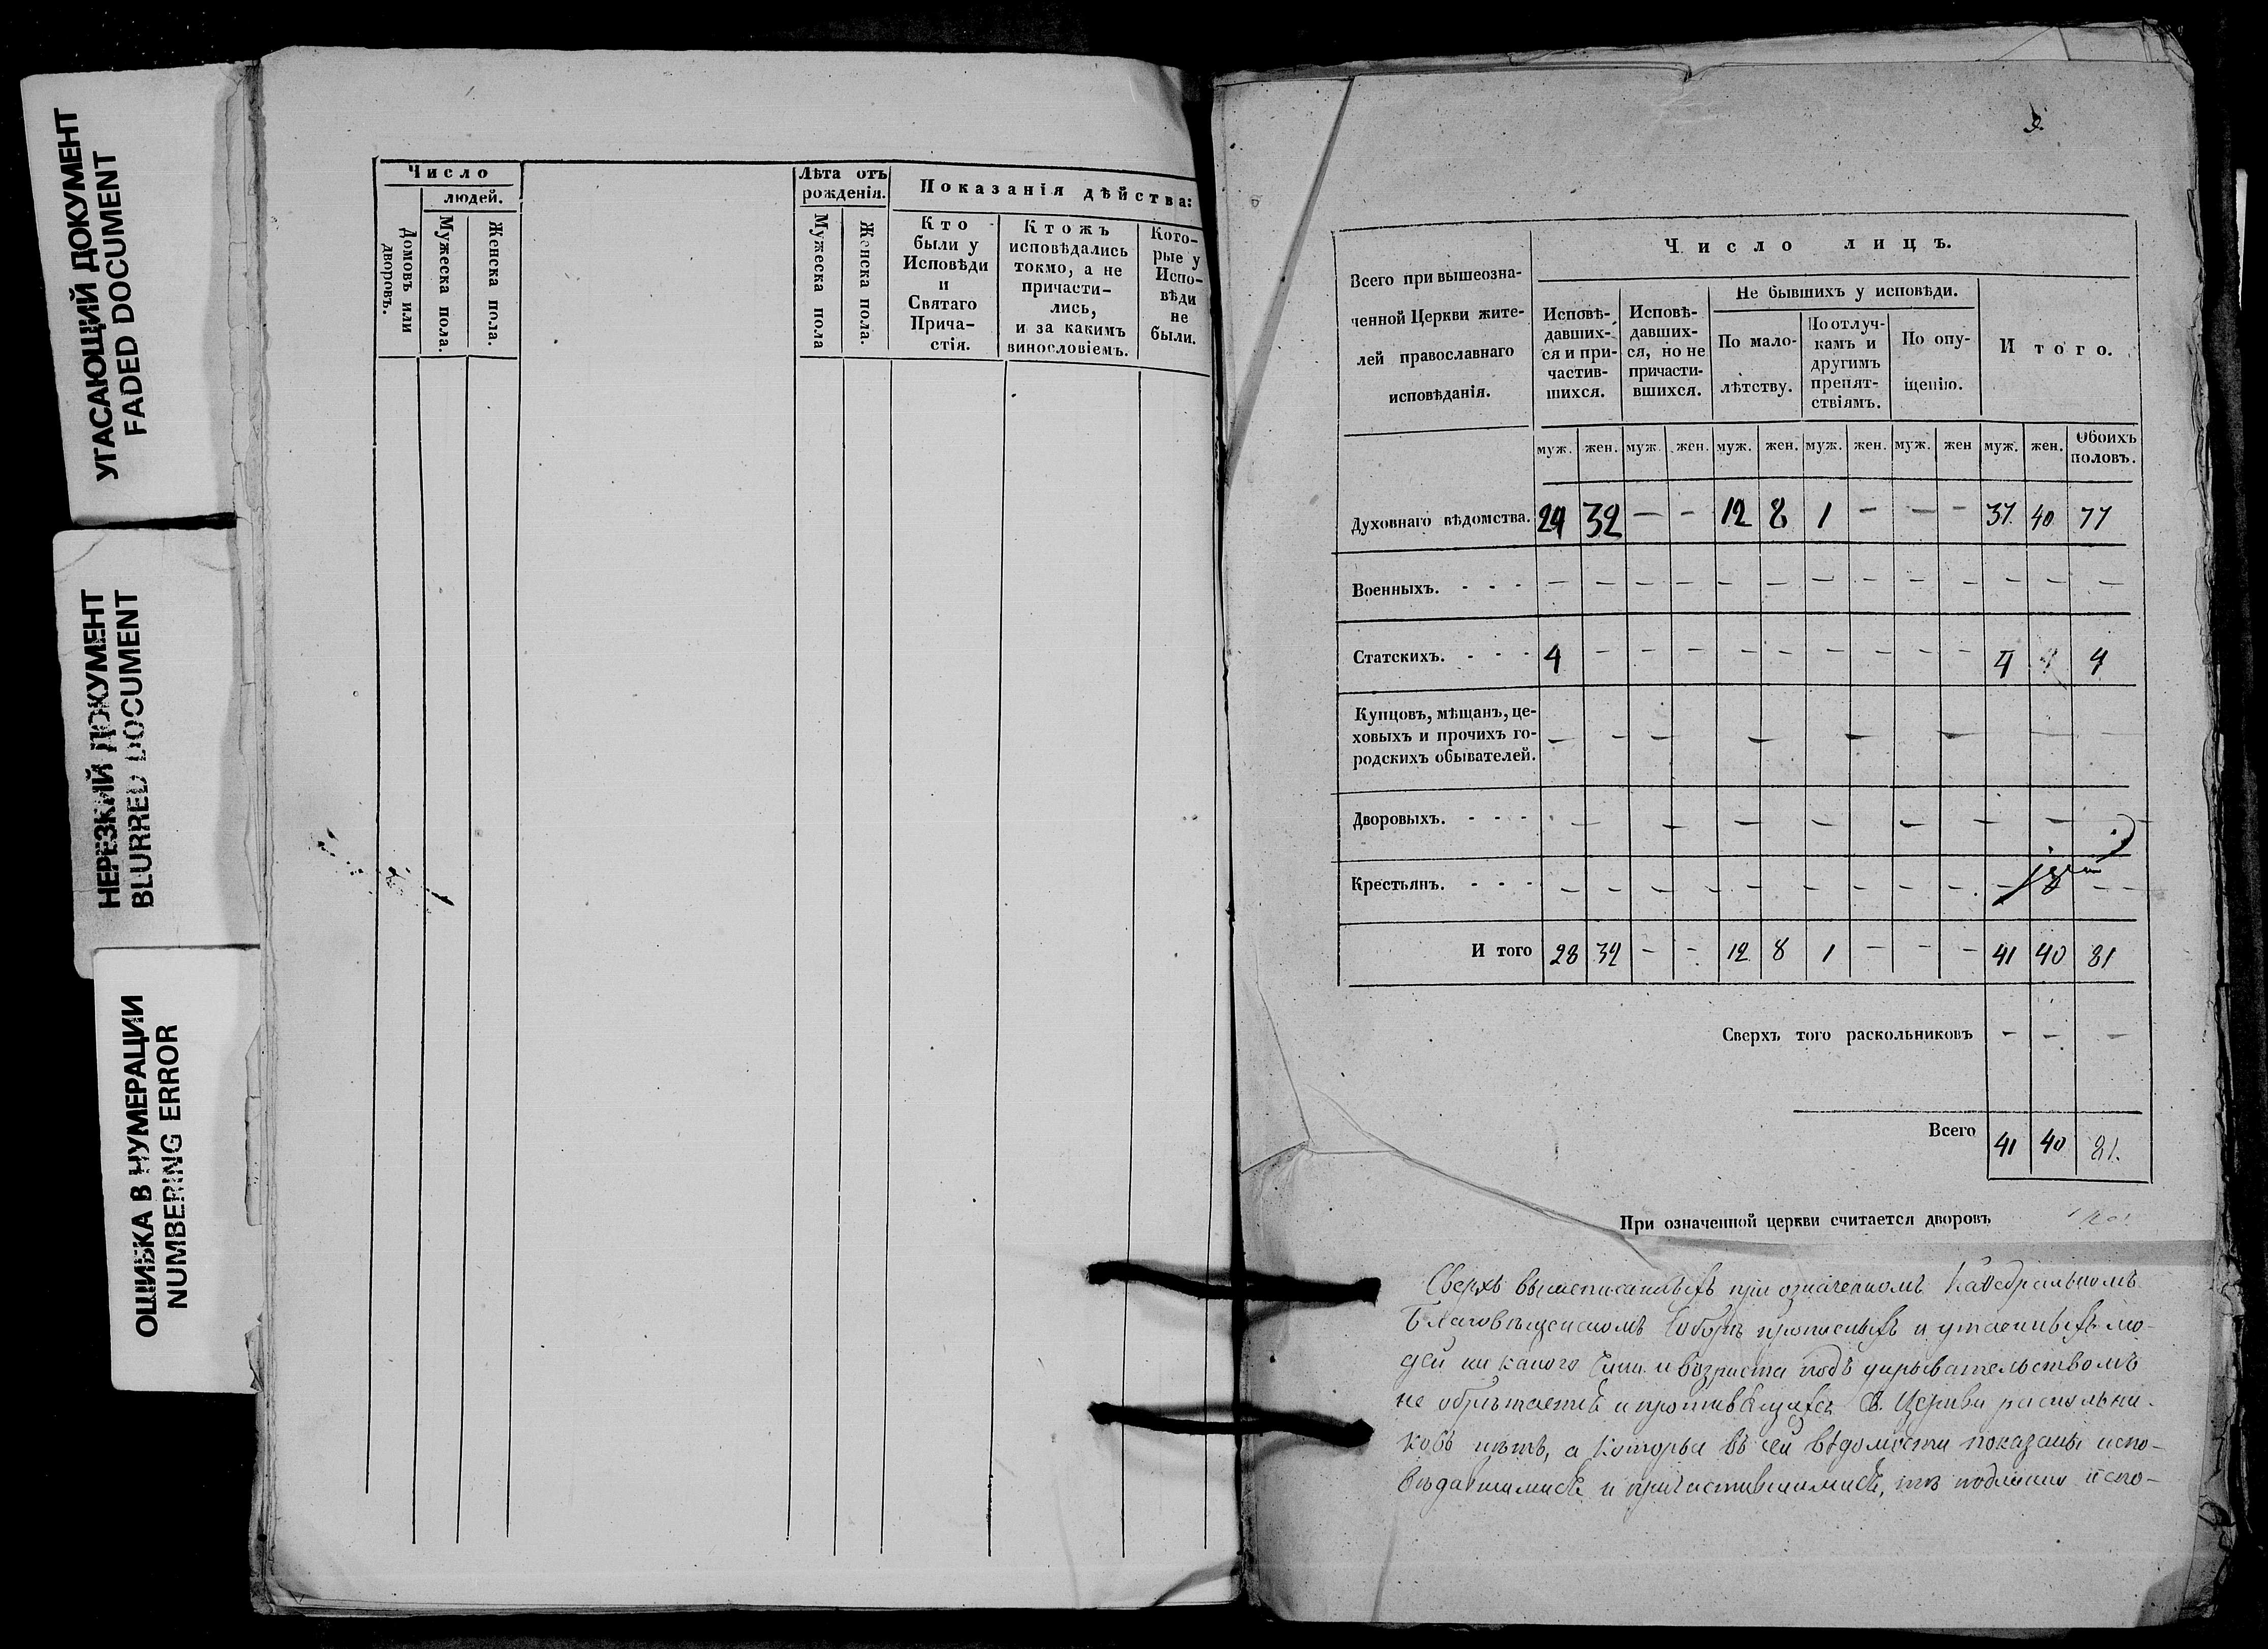 УГАСАЮЩИЙ ДОКУМЕНТ
FADED DOCUMENT
НЕРЕЗКИЙ ДОКУМЕНТ
BLURRED DOCUMENT
ОШИБКА В НУМЕРАЦИИ
NUMBERING ERROR
Число
людей.
Домовъ или дворовъ.
Мужеска пола.
Женска пола.
Лѣта отъ
рожденія.
Мужеска пола
Женска пола.
Показанія дѣйства:
Кто
были у
Исповѣди
и
Святаго
Прича-
стія.
Ктожъ
исповѣдались
токмо, а не
причасти-
лись,
и за какимъ
винословіемъ.
Кото-
рые у
Испо-
вѣди
не
были.
Всего при вышеозна-
ченной Церкви жите-
лей православнаго
исповѣданія.
Число лицъ.
Исповѣ-
давших-
ся и при-
частив-
шихся.
Исповѣ-
давших-
ся, но не
причасти-
вшихся.
Не бывшихъ у исповѣди.
По мало-
лѣтству.
По отлуч-
камъ и
другимъ
препят-
ствіямъ.
По опу-
щенію.
Итого.
муж. жен. муж. жен. муж. жен. муж. жен. муж. жен муж. жен. Обоихъ половъ.
Духовнаго вѣдомства. 24 32 — — 12 8 1 — — — 37. 40 77
Военныхъ. - - - — — — — — — — — — — — — —
Статскихъ. - - - 4 — — — — — — — — — 4 4
Купцовъ, мѣщанъ, це-
ховыхъ и прочихъ го-
родскихъ обывателей. — — — — — — — —
Дворовыхъ. - - - — — — — — — — —
Крестьянъ. - - - — — — — — — — — — — — — —
И того 28 32 — — 12 8 1 — — — 41 40 81
Сверхъ того раскольниковъ — — —
Всего 41 40 81.
При означенной церкви считается дворовъ
Сверхъ вышеписанныхъ при означенномъ Каѳедральномъ
Благовѣщенскомъ Соборѣ прописныхъ и утаенныхъ лю-
дей ни какого чина и возраста подъ укрывательствомъ
не обрѣтается и противящихся Св. Церкви раскольни-
ковъ нѣтъ, а которые въ сей вѣдомости показаны испо-
вѣдавшимися и причастившимися, тѣ подлинно испо-